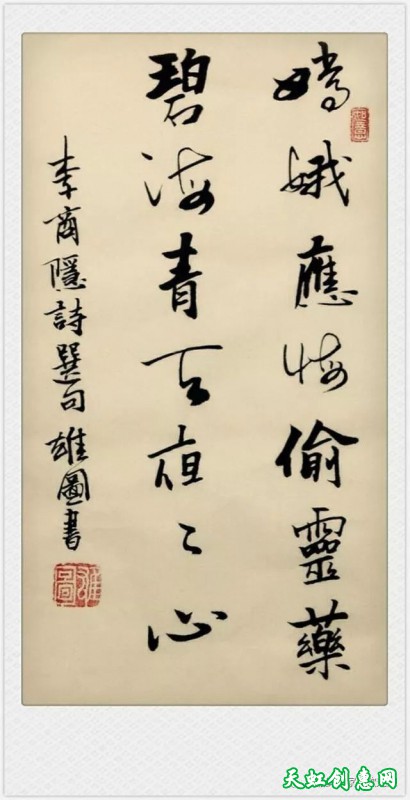 嫦娥應悔偷靈藥
碧海青天夜〻心
李商隱詩選句雄圖書
雄圖
天虹创惠网